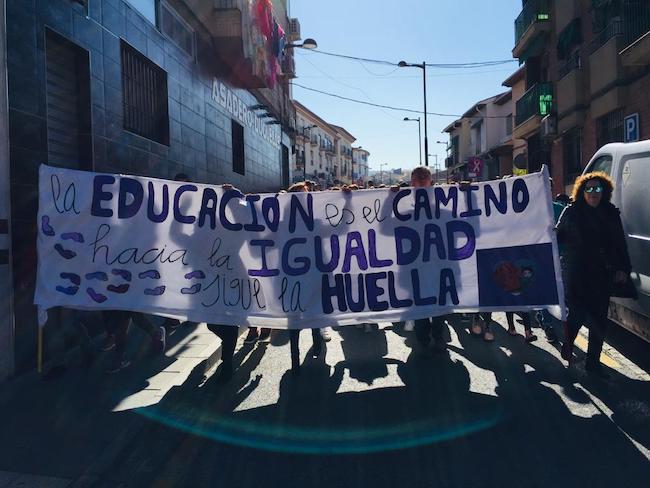 ASADERO
la EDUCACIÓN es el CAMINO
hacia la IGUALDAD
SIGUE la HUELLA
P